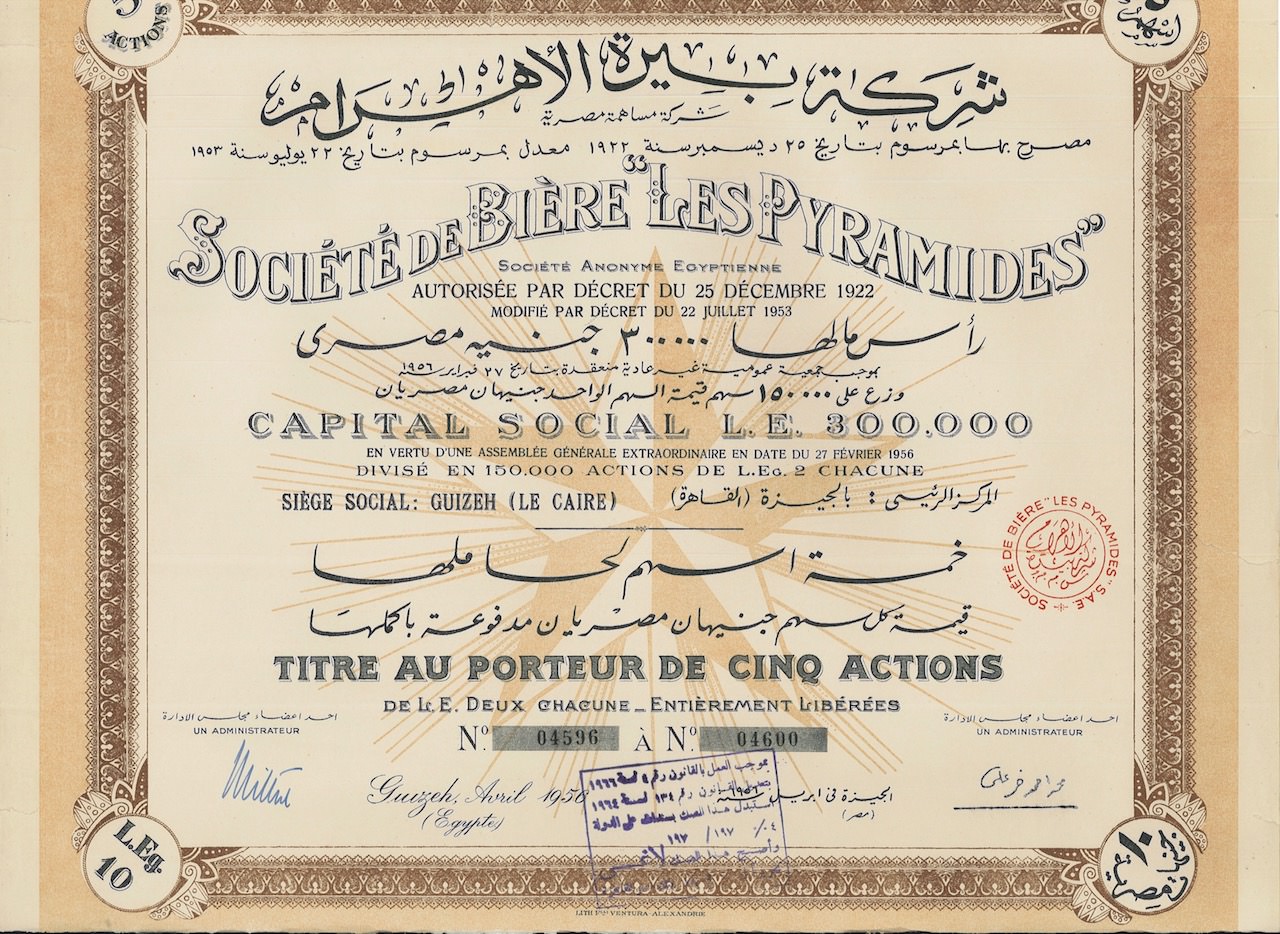 5
ACTIONS
اسهم
شركة بيرة الأهرام
شركة مساهمة مصرية
مصرح بها بمرسوم بتاريخ ٢٥ ديسمبر سنة ١٩٢٢ معدل بمرسوم بتاريخ ٢٢ يوليو سنة ١٩٥٣
SOCIÉTÉ DE BIÈRE “LES PYRAMIDES”
SOCIÉTÉ ANONYME EGYPTIENNE
AUTORISÉE PAR DÉCRET DU 25 DÉCEMBRE 1922
MODIFIÉ PAR DÉCRET DU 22 JUILLET 1953
رأس مالها ٣٠٠٠٠٠ جنيه مصرى
بموجب جمعية عمومية غير عادية منعقدة بتاريخ ٢٧ فبراير سنة ١٩٥٦
وزع على ١٥٠٠٠٠ سهم قيمة السهم الواحد جنيهان مصريان
CAPITAL SOCIAL L.E. 300.000
EN VERTU D'UNE ASSEMBLÉE GÉNÉRALE EXTRAORDINAIRE EN DATE DU 27 FÉVRIER 1956
DIVISÉ EN 150.000 ACTIONS DE L.EG. 2 CHACUNE
SIÈGE SOCIAL: GUIZEH (LE CAIRE) المركز الرئيسى : بالجيزة (القاهرة)
SOCIÉTÉ DE BIÈRE "LES PYRAMIDES" S.A.E.
خمسة اسهم لحاملها
قيمة كل سهم جنيهان مصريان مدفوعة باكملها
TITRE AU PORTEUR DE CINQ ACTIONS
DE L.E. DEUX CHACUNE _ ENTIÈREMENT LIBÉRÉES
احد اعضاء مجلس الادارة
UN ADMINISTRATEUR
احد اعضاء مجلس الادارة
UN ADMINISTRATEUR
No. 04596 À No. 04600
Guizeh, Avril 1956
(Egypte)
الجيزة فى ابريل سنة ١٩٥٦
(مصر)
بموجب العمل بالقانون رقم ٤ لسنة ١٩٦٦
بتعديل القانون رقم ١٣٤ لسنة ١٩٦٤
استبدل هذا الصك بسندات على الدولة
٤٪ ١٩٧ / ١٩٧
وأصبح هذا الصك لاغى
L.Eg.
10
١٠
جنيهات
مصرية
LITH Fes VENTURA-ALEXANDRIE